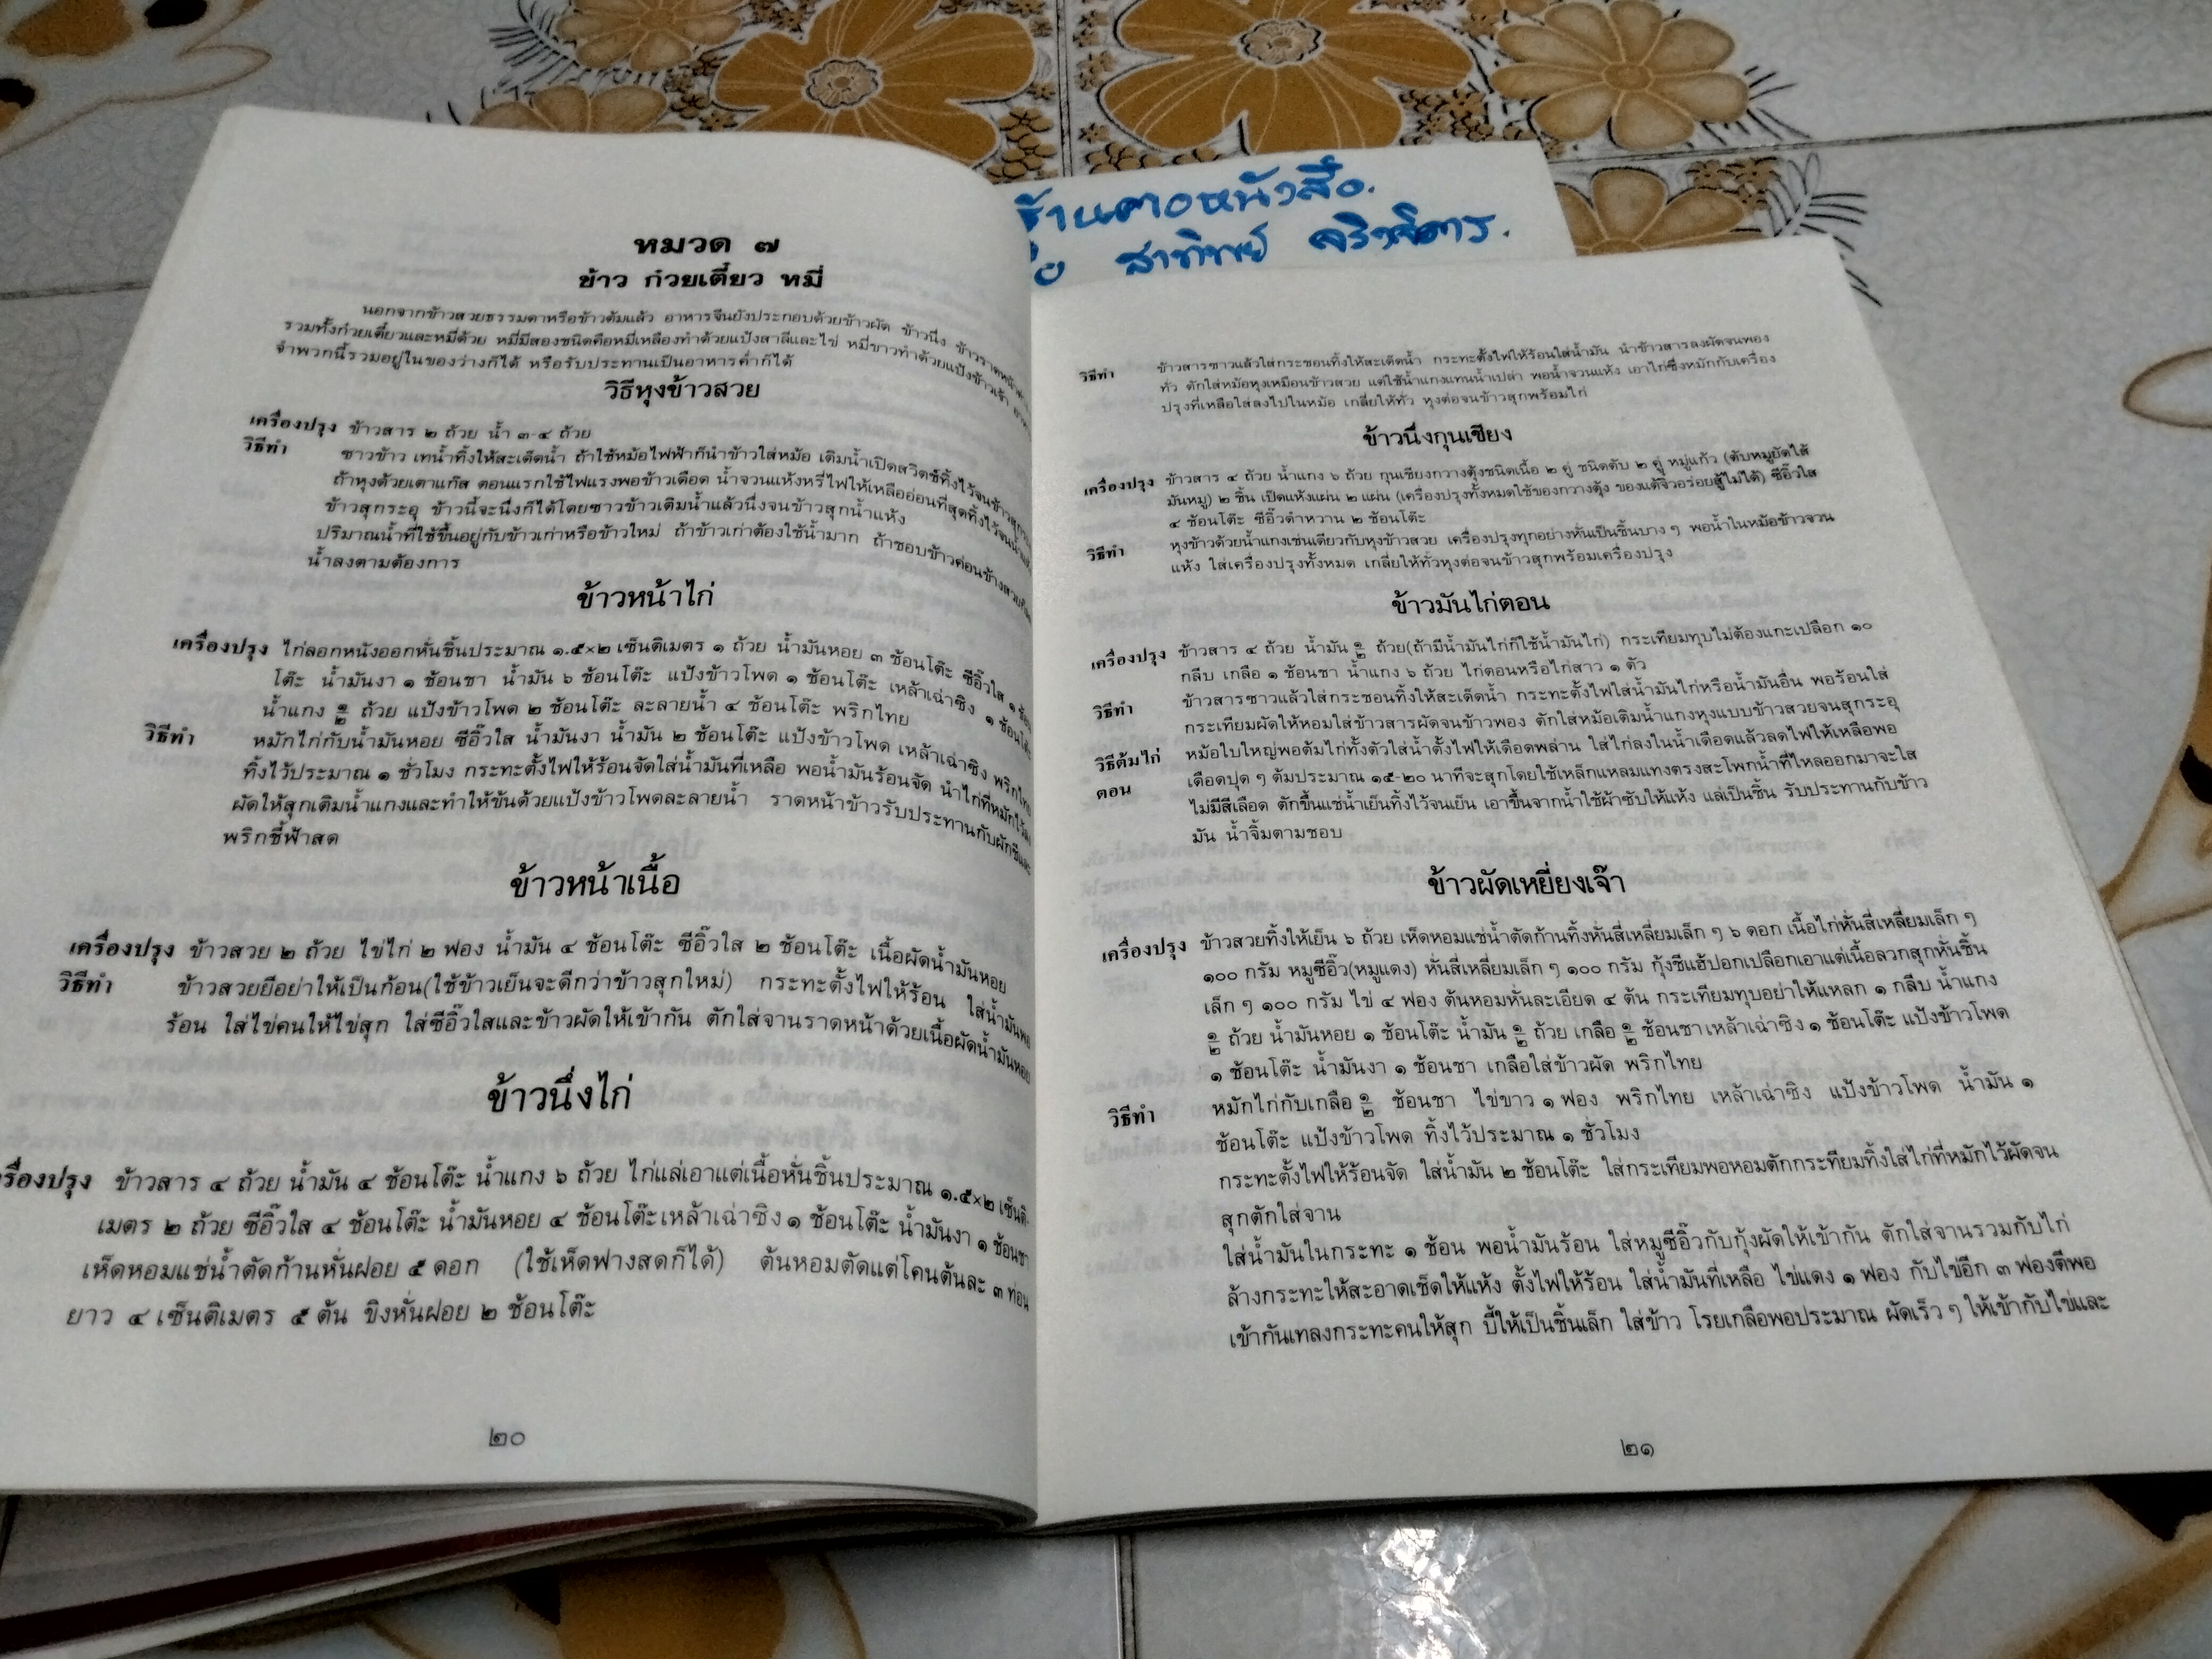 ร้านคาวหนังสือ.
สาทิพย์
หมวด ๗
ข้าว ก๋วยเตี๋ยว หมี่
นอกจากข้าวสวยธรรมดาหรือข้าวต้มแล้ว อาหารจีนยังประกอบด้วยข้าวผัด ข้าวนึ่ง ข้าวราดหน้าต่าง
รวมทั้งก๋วยเตี๋ยวและหมี่ด้วย หมี่มีสองชนิดคือหมี่เหลืองทำด้วยแป้งสาลีและไข่ หมี่ขาวทำด้วยแป้งข้าวเจ้า
จำพวกนี้รวมอยู่ในของว่างก็ได้ หรือรับประทานเป็นอาหารค่ำก็ได้
วิธีหุงข้าวสวย
เครื่องปรุง ข้าวสาร ๒ ถ้วย น้ำ ๓-๔ ถ้วย
วิธีทำ ซาวข้าว เทน้ำทิ้งให้สะเด็ดน้ำ ถ้าใช้หม้อไฟฟ้าก็นำข้าวใส่หม้อ เติมน้ำเปิดสวิตซ์ทิ้งไว้จนข้าวสุก
ถ้าหุงด้วยเตาแก๊ส ตอนแรกใช้ไฟแรงพอข้าวเดือด น้ำจวนแห้งหรี่ไฟให้เหลืออ่อนที่สุดทิ้งไว้จน
ข้าวสุกระอุ ข้าวนี้จะนึ่งก็ได้โดยซาวข้าวเติมน้ำแล้วนึ่งจนข้าวสุกน้ำแห้ง
ปริมาณน้ำที่ใช้ขึ้นอยู่กับข้าวเก่าหรือข้าวใหม่ ถ้าข้าวเก่าต้องใช้น้ำมาก ถ้าชอบข้าวค่อนข้างสวย
น้ำลงตามต้องการ
ข้าวหน้าไก่
เครื่องปรุง ไก่ลอกหนังออกหั่นชิ้นประมาณ ๑.๕×๒ เซ็นติเมตร ๑ ถ้วย น้ำมันหอย ๓ ช้อนโต๊ะ ซีอิ๊วใส ๑ ช้อน
โต๊ะ น้ำมันงา ๑ ช้อนชา น้ำมัน ๖ ช้อนโต๊ะ แป้งข้าวโพด ๑ ช้อนโต๊ะ เหล้าเฉ่าซิง ๑ ช้อนโต๊ะ
น้ำแกง ๑/๒ ถ้วย แป้งข้าวโพด ๒ ช้อนโต๊ะ ละลายน้ำ ๔ ช้อนโต๊ะ พริกไทย
วิธีทำ หมักไก่กับน้ำมันหอย ซีอิ๊วใส น้ำมันงา น้ำมัน ๒ ช้อนโต๊ะ แป้งข้าวโพด เหล้าเฉ่าซิง พริกไทย
ทิ้งไว้ประมาณ ๑ ชั่วโมง กระทะตั้งไฟให้ร้อนจัดใส่น้ำมันที่เหลือ พอน้ำมันร้อนจัด นำไก่ที่หมักไว้ลง
ผัดให้สุกเติมน้ำแกงและทำให้ข้นด้วยแป้งข้าวโพดละลายน้ำ ราดหน้าข้าวรับประทานกับผักชีและ
พริกชี้ฟ้าสด
ข้าวหน้าเนื้อ
เครื่องปรุง ข้าวสวย ๒ ถ้วย ไข่ไก่ ๒ ฟอง น้ำมัน ๔ ช้อนโต๊ะ ซีอิ๊วใส ๒ ช้อนโต๊ะ เนื้อผัดน้ำมันหอย
วิธีทำ ข้าวสวยยีอย่าให้เป็นก้อน(ใช้ข้าวเย็นจะดีกว่าข้าวสุกใหม่) กระทะตั้งไฟให้ร้อน ใส่น้ำมันพอ
ร้อน ใส่ไข่คนให้ไข่สุก ใส่ซีอิ๊วใสและข้าวผัดให้เข้ากัน ตักใส่จานราดหน้าด้วยเนื้อผัดน้ำมันหอย
ข้าวนึ่งไก่
รื่องปรุง ข้าวสาร ๔ ถ้วย น้ำมัน ๔ ช้อนโต๊ะ น้ำแกง ๖ ถ้วย ไก่แล่เอาแต่เนื้อหั่นชิ้นประมาณ ๑.๕×๒ เซ็นติ-
เมตร ๒ ถ้วย ซีอิ๊วใส ๔ ช้อนโต๊ะ น้ำมันหอย ๔ ช้อนโต๊ะเหล้าเฉ่าซิง ๑ ช้อนโต๊ะ น้ำมันงา ๑ ช้อนชา
เห็ดหอมแช่น้ำตัดก้านหั่นฝอย ๕ ดอก (ใช้เห็ดฟางสดก็ได้) ต้นหอมตัดแต่โคนต้นละ ๓ ท่อน
ยาว ๔ เซ็นติเมตร ๕ ต้น ขิงหั่นฝอย ๒ ช้อนโต๊ะ
๒๐
วิธีทำ ข้าวสารซาวแล้วใส่กระชอนทิ้งให้สะเด็ดน้ำ กระทะตั้งไฟให้ร้อนใส่น้ำมัน นำข้าวสารลงผัดจนพอง
ทั่ว ตักใส่หม้อหุงเหมือนข้าวสวย แต่ใช้น้ำแกงแทนน้ำเปล่า พอน้ำจวนแห้ง เอาไก่ซึ่งหมักกับเครื่อง
ปรุงที่เหลือใส่ลงไปในหม้อ เกลี่ยให้ทั่ว หุงต่อจนข้าวสุกพร้อมไก่
ข้าวนึ่งกุนเชียง
เครื่องปรุง ข้าวสาร ๔ ถ้วย น้ำแกง ๖ ถ้วย กุนเชียงกวางตุ้งชนิดเนื้อ ๒ คู่ ชนิดตับ ๒ คู่ หมู่แก้ว (ตับหมูยัดไส้
มันหมู) ๒ ชิ้น เป็ดแห้งแผ่น ๒ แผ่น (เครื่องปรุงทั้งหมดใช้ของกวางตุ้ง ของแต้จิ๋วอร่อยสู้ไม่ได้) ซีอิ๊วใส
๔ ช้อนโต๊ะ ซีอิ๊วดำหวาน ๒ ช้อนโต๊ะ
วิธีทำ หุงข้าวด้วยน้ำแกงเช่นเดียวกับหุงข้าวสวย เครื่องปรุงทุกอย่างหั่นเป็นชิ้นบาง ๆ พอน้ำในหม้อข้าวจวน
แห้ง ใส่เครื่องปรุงทั้งหมด เกลี่ยให้ทั่วหุงต่อจนข้าวสุกพร้อมเครื่องปรุง
ข้าวมันไก่ตอน
เครื่องปรุง ข้าวสาร ๔ ถ้วย น้ำมัน ๑/๒ ถ้วย(ถ้ามีน้ำมันไก่ก็ใช้น้ำมันไก่) กระเทียมทุบไม่ต้องแกะเปลือก ๑๐
กลีบ เกลือ ๑ ช้อนชา น้ำแกง ๖ ถ้วย ไก่ตอนหรือไก่สาว ๑ ตัว
วิธีทำ ข้าวสารซาวแล้วใส่กระชอนทิ้งให้สะเด็ดน้ำ กระทะตั้งไฟใส่น้ำมันไก่หรือน้ำมันอื่น พอร้อนใส่
กระเทียมผัดให้หอมใส่ข้าวสารผัดจนข้าวพอง ตักใส่หม้อเติมน้ำแกงหุงแบบข้าวสวยจนสุกระอุ
วิธีต้มไก่ หม้อใบใหญ่พอต้มไก่ทั้งตัวใส่น้ำตั้งไฟให้เดือดพล่าน ใส่ไก่ลงในน้ำเดือดแล้วลดไฟให้เหลือพอ
ตอน เดือดปุด ๆ ต้มประมาณ ๑๕-๒๐ นาทีจะสุกโดยใช้เหล็กแหลมแทงตรงสะโพกน้ำที่ไหลออกมาจะใส
ไม่มีสีเลือด ตักขึ้นแช่น้ำเย็นทิ้งไว้จนเย็น เอาขึ้นจากน้ำใช้ผ้าซับให้แห้ง แล่เป็นชิ้น รับประทานกับข้าว
มัน น้ำจิ้มตามชอบ
ข้าวผัดเหยี่ยงเจ๊า
เครื่องปรุง ข้าวสวยทิ้งให้เย็น ๖ ถ้วย เห็ดหอมแช่น้ำตัดก้านทิ้งหั่นสี่เหลี่ยมเล็ก ๆ ๖ ดอก เนื้อไก่หั่นสี่เหลี่ยมเล็ก ๆ
๑๐๐ กรัม หมูซีอิ๊ว(หมูแดง) หั่นสี่เหลี่ยมเล็ก ๆ ๑๐๐ กรัม กุ้งชีแฮ้ปอกเปลือกเอาแต่เนื้อลวกสุกหั่นชิ้น
เล็ก ๆ ๑๐๐ กรัม ไข่ ๔ ฟอง ต้นหอมหั่นละเอียด ๔ ต้น กระเทียมทุบอย่าให้แหลก ๑ กลีบ น้ำแกง
๑/๒ ถ้วย น้ำมันหอย ๑ ช้อนโต๊ะ น้ำมัน ๑/๒ ถ้วย เกลือ ๑/๒ ช้อนชา เหล้าเฉ่าซิง ๑ ช้อนโต๊ะ แป้งข้าวโพด
๑ ช้อนโต๊ะ น้ำมันงา ๑ ช้อนชา เกลือใส่ข้าวผัด พริกไทย
วิธีทำ หมักไก่กับเกลือ ๑/๒ ช้อนชา ไข่ขาว ๑ ฟอง พริกไทย เหล้าเฉ่าซิง แป้งข้าวโพด น้ำมัน ๑
ช้อนโต๊ะ แป้งข้าวโพด ทิ้งไว้ประมาณ ๑ ชั่วโมง
กระทะตั้งไฟให้ร้อนจัด ใส่น้ำมัน ๒ ช้อนโต๊ะ ใส่กระเทียมพอหอมตักกระทียมทิ้งใส่ไก่ที่หมักไว้ผัดจน
สุกตักใส่จาน
ใส่น้ำมันในกระทะ ๑ ช้อน พอน้ำมันร้อน ใส่หมูซีอิ๊วกับกุ้งผัดให้เข้ากัน ตักใส่จานรวมกับไก่
ล้างกระทะให้สะอาดเช็ดให้แห้ง ตั้งไฟให้ร้อน ใส่น้ำมันที่เหลือ ไข่แดง ๑ ฟอง กับไข่อีก ๓ ฟองตีพอ
เข้ากันเทลงกระทะคนให้สุก บี้ให้เป็นชิ้นเล็ก ใส่ข้าว โรยเกลือพอประมาณ ผัดเร็ว ๆ ให้เข้ากับไข่และ
๒๑